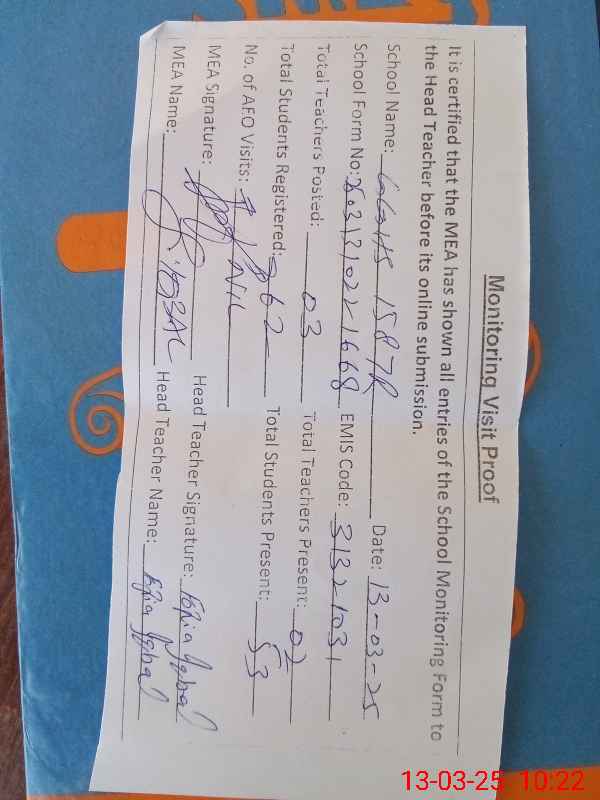 Monitoring Visit Proof
It is certified that the MEA has shown all entries of the School Monitoring Form to
the Head Teacher before its online submission.
School Name: 158 7R Date: 13-03-25
School Form No: EMIS Code: 31321031
Total Teachers Posted: 03 Total Teachers Present: 02
Total Students Registered: 62 Total Students Present: 53
No. of AEO Visits: NIL
MEA Signature: Head Teacher Signature: Iqbal
MEA Name: IQBAL Head Teacher Name: Iqbal
13-03-25 10:22